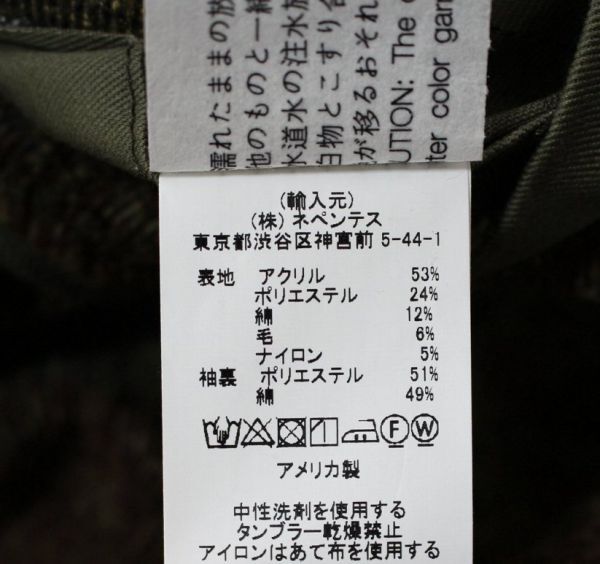 濡れたままの放
他のものと一緒
水道水の注水放
白物とこすり合
が移るおそれ
UTION: The
color gar
(輸入元)
(株) ネペンテス
東京都渋谷区神宮前 5-44-1
表地 アクリル 53%
ポリエステル 24%
綿 12%
毛 6%
ナイロン 5%
袖裏 ポリエステル 51%
綿 49%
F W
アメリカ製
中性洗剤を使用する
タンブラー乾燥禁止
アイロンはあて布を使用する